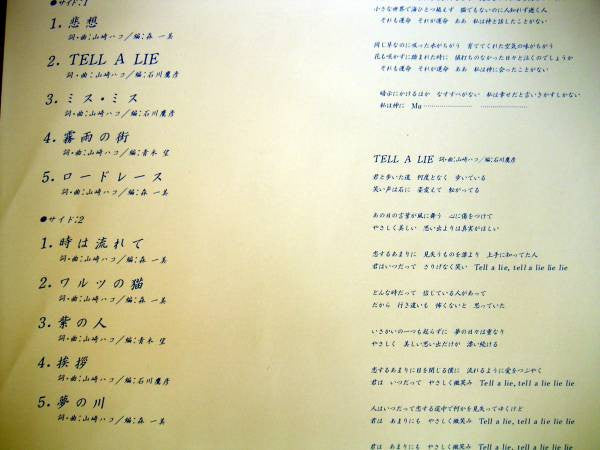 ●サイド:1
1. 悲想
詞・曲:山崎ハコ/編:森 一美
2. TELL A LIE
詞・曲:山崎ハコ/編:石川鷹彦
3. ミス・ミス
詞・曲:山崎ハコ/編:石川鷹彦
4. 霧雨の街
詞・曲:山崎ハコ/編:青木 望
5. ロードレース
詞・曲:山崎ハコ/編:森 一美
●サイド:2
1. 時は流れて
詞・曲:山崎ハコ/編:森 一美
2. ワルツの猫
詞・曲:山崎ハコ/編:森 一美
3. 紫の人
詞・曲:山崎ハコ/編:青木 望
4. 挨拶
詞・曲:山崎ハコ/編:石川鷹彦
5. 夢の川
詞・曲:山崎ハコ/編:森 一美
それも運命 それが運命 ああ 私は神と話したことがない
同じ草なのに吸った水がちがう 育ててくれた空気の味がちがう
花も咲かずに踏まれた時に 値打ちのなかった日々と泣くのでしょうか
それも運命 それが運命 ああ 私は神に会ったことがない
暗示にかけるほか なすすべがない 私は幸せだと言いきかすしかない
私は神に Mu…………… ……………
TELL A LIE 詞・曲:山崎ハコ/編:石川鷹彦
君と歩いた道 何度となく 歩いている
笑い声は石に 姿変えて 転がってる
あの日の言葉が風に舞う 心に傷をつけて
やさしく美しい 思い出よりは真実がほしい
恋するあまりに 見失うものを誰より 上手に知ってた人
君はいつだって さりげなく笑い Tell a lie, tell a lie lie lie
どんな時だって 信じている人があって
だから 行き違いも 怖くないと 思っていた
いさかいの一つも起らずに 夢の日々は重なり
やさしく 美しい思い出だけが 漂い続ける
恋するあまりに目を閉じる僕に 流れるように愛をつぶやく
君は いつだって やさしく微笑み Tell a lie, tell a lie lie lie
人はいつだって恋する途中で何かを見失ってゆくけど
君は あまりにも やさしく微笑み Tell a lie, tell a lie lie lie
君は あまりにも やさしく微笑み Tell a lie, tell a lie lie lie